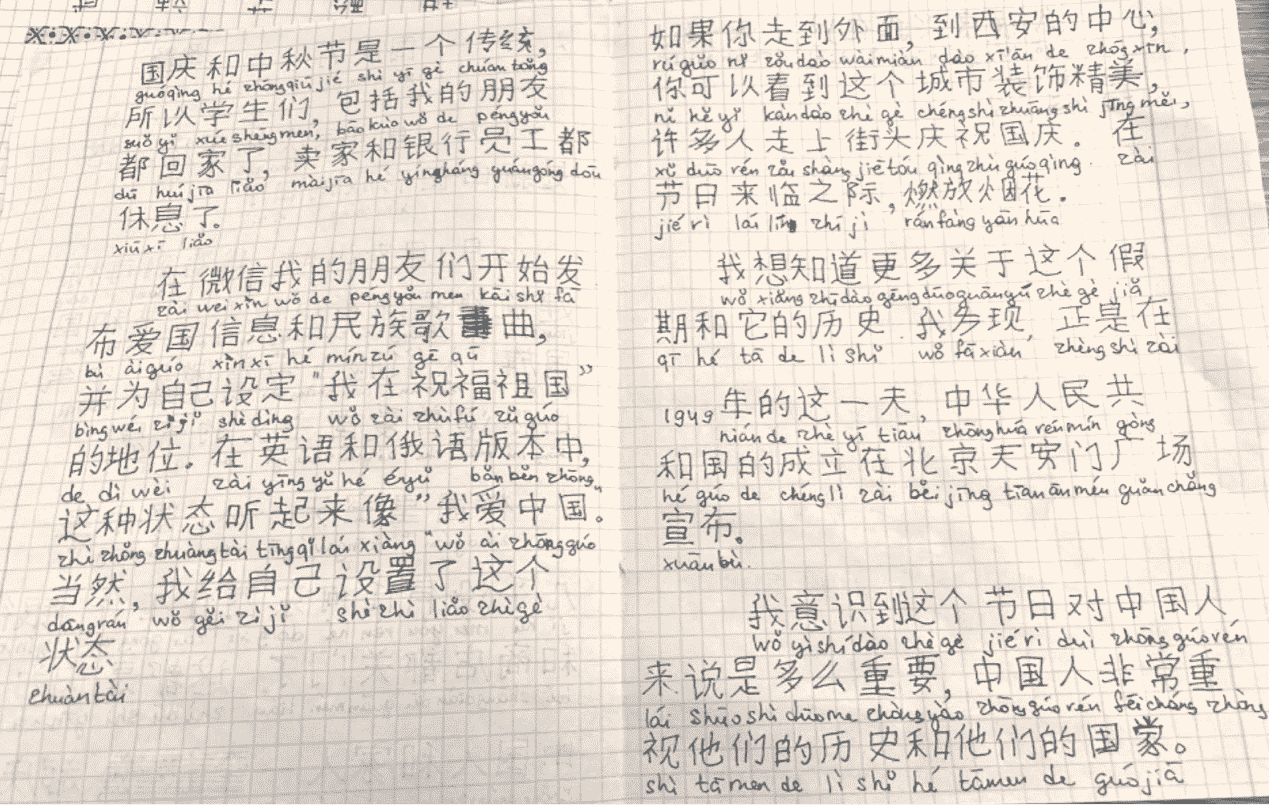 国庆和中秋节是一个传统,
guóqìng hé zhōngqiū jié shì yī gè chuántǒng
所以学生们, 包括我的朋友
suǒ yǐ xué shengmen, bāo kuò wǒ de péngyǒu
都回家了, 卖家和银行员工都
dū huíjiā liǎo màijiā hé yínháng yuángōng dōu
休息了.
xiūxī liǎo
在微信我的朋友们开始发
zài wēi xìn wǒ de péngyǒu men kāi shǐ fā
布爱国信息和民族歌曲,
bù àiguó xìnxī hé mínzú gē qǔ
并为自己设定 "我在祝福祖国"
bìngwéi zìjǐ shèdìng wǒ zài zhùfú zǔguó
的地位. 在英语和俄语版本中,
de dì wèi zài yīng yǔ hé éyǔ bǎnběn zhōng,
这种状态听起来像 "我爱中国".
zhè zhǒng zhuàngtài tīngqǐlái xiàng "wǒ ài zhōngguó
当然, 我给自己设置了这个
dāngrán wǒ gěi zìjǐ shèzhì liǎo zhègè
状态
zhuàntài
如果你走到外面, 到西安的中心,
rúguǒ nǐ zǒudào wàimiàn dào xī'ān de zhōgxīn,
你可以看到这个城市装饰精美,
nǐ kě yǐ kàndào zhè gè chéngshì zhuāngshì jīngměi,
许多人走上街头庆祝国庆. 在
xǔ duō rén zǒu shàng jiētóu qìngzhù guóqìng. zài
节日来临之际, 燃放烟花.
jié rì lái lín zhī jì ránfàng yān huā
我想知道更多关于这个假
wǒ xiǎng zhīdào gèngduōguānyú zhè gè jiǎ
期和它的历史. 我发现, 正是在
qī hé tā de lì shǐ wǒ fāxiàn zhèngshì zài
1949 年的这一天, 中华人民共
nián de zhè yī tiān zhōnghuá rénmín gòng
和国的成立在北京天安门广场
hé guó de chénglì zài běijīng tiānānmén guǎnchǎng
宣布.
xuānbù.
我意识到这个节日对中国人
wǒ yìshídào zhègè jiérì duì zhōngguórén
来说是多么重要, 中国人非常重
lái shuōshì duōme zhòngyào zhōngguórén fēicháng zhòng
视他们的历史和他们的国家.
shì tāmen de lì shǐ hé tāmen de guójiā